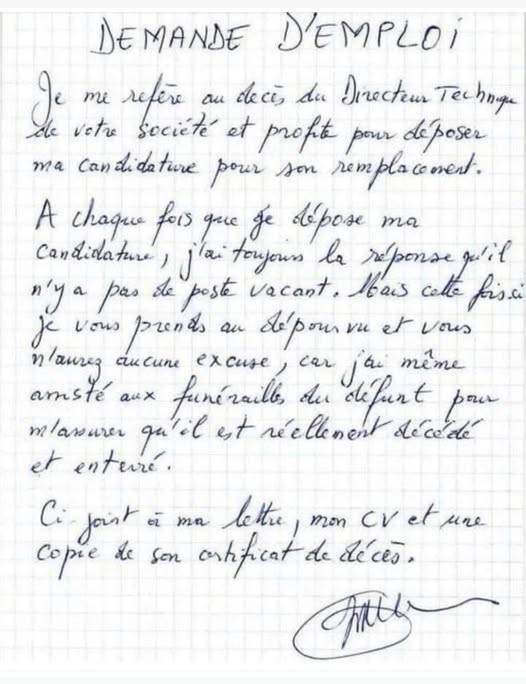 DEMANDE D'EMPLOI
Je me refère au decès du Directeur Technique
de votre société et profite pour déposer
ma candidature pour son remplacement.
A chaque fois que je dépose ma
candidature, j'ai toujours la réponse qu'il
n'y a pas de poste vacant. Mais cette fois-ci
je vous prends au dépourvu et vous
n'aurez aucune excuse, car j'ai même
assisté aux funérailles du défunt pour
m'assurer qu'il est réellement décédé
et enterré.
Ci-joint à ma lettre, mon CV et une
copie de son certificat de décès.